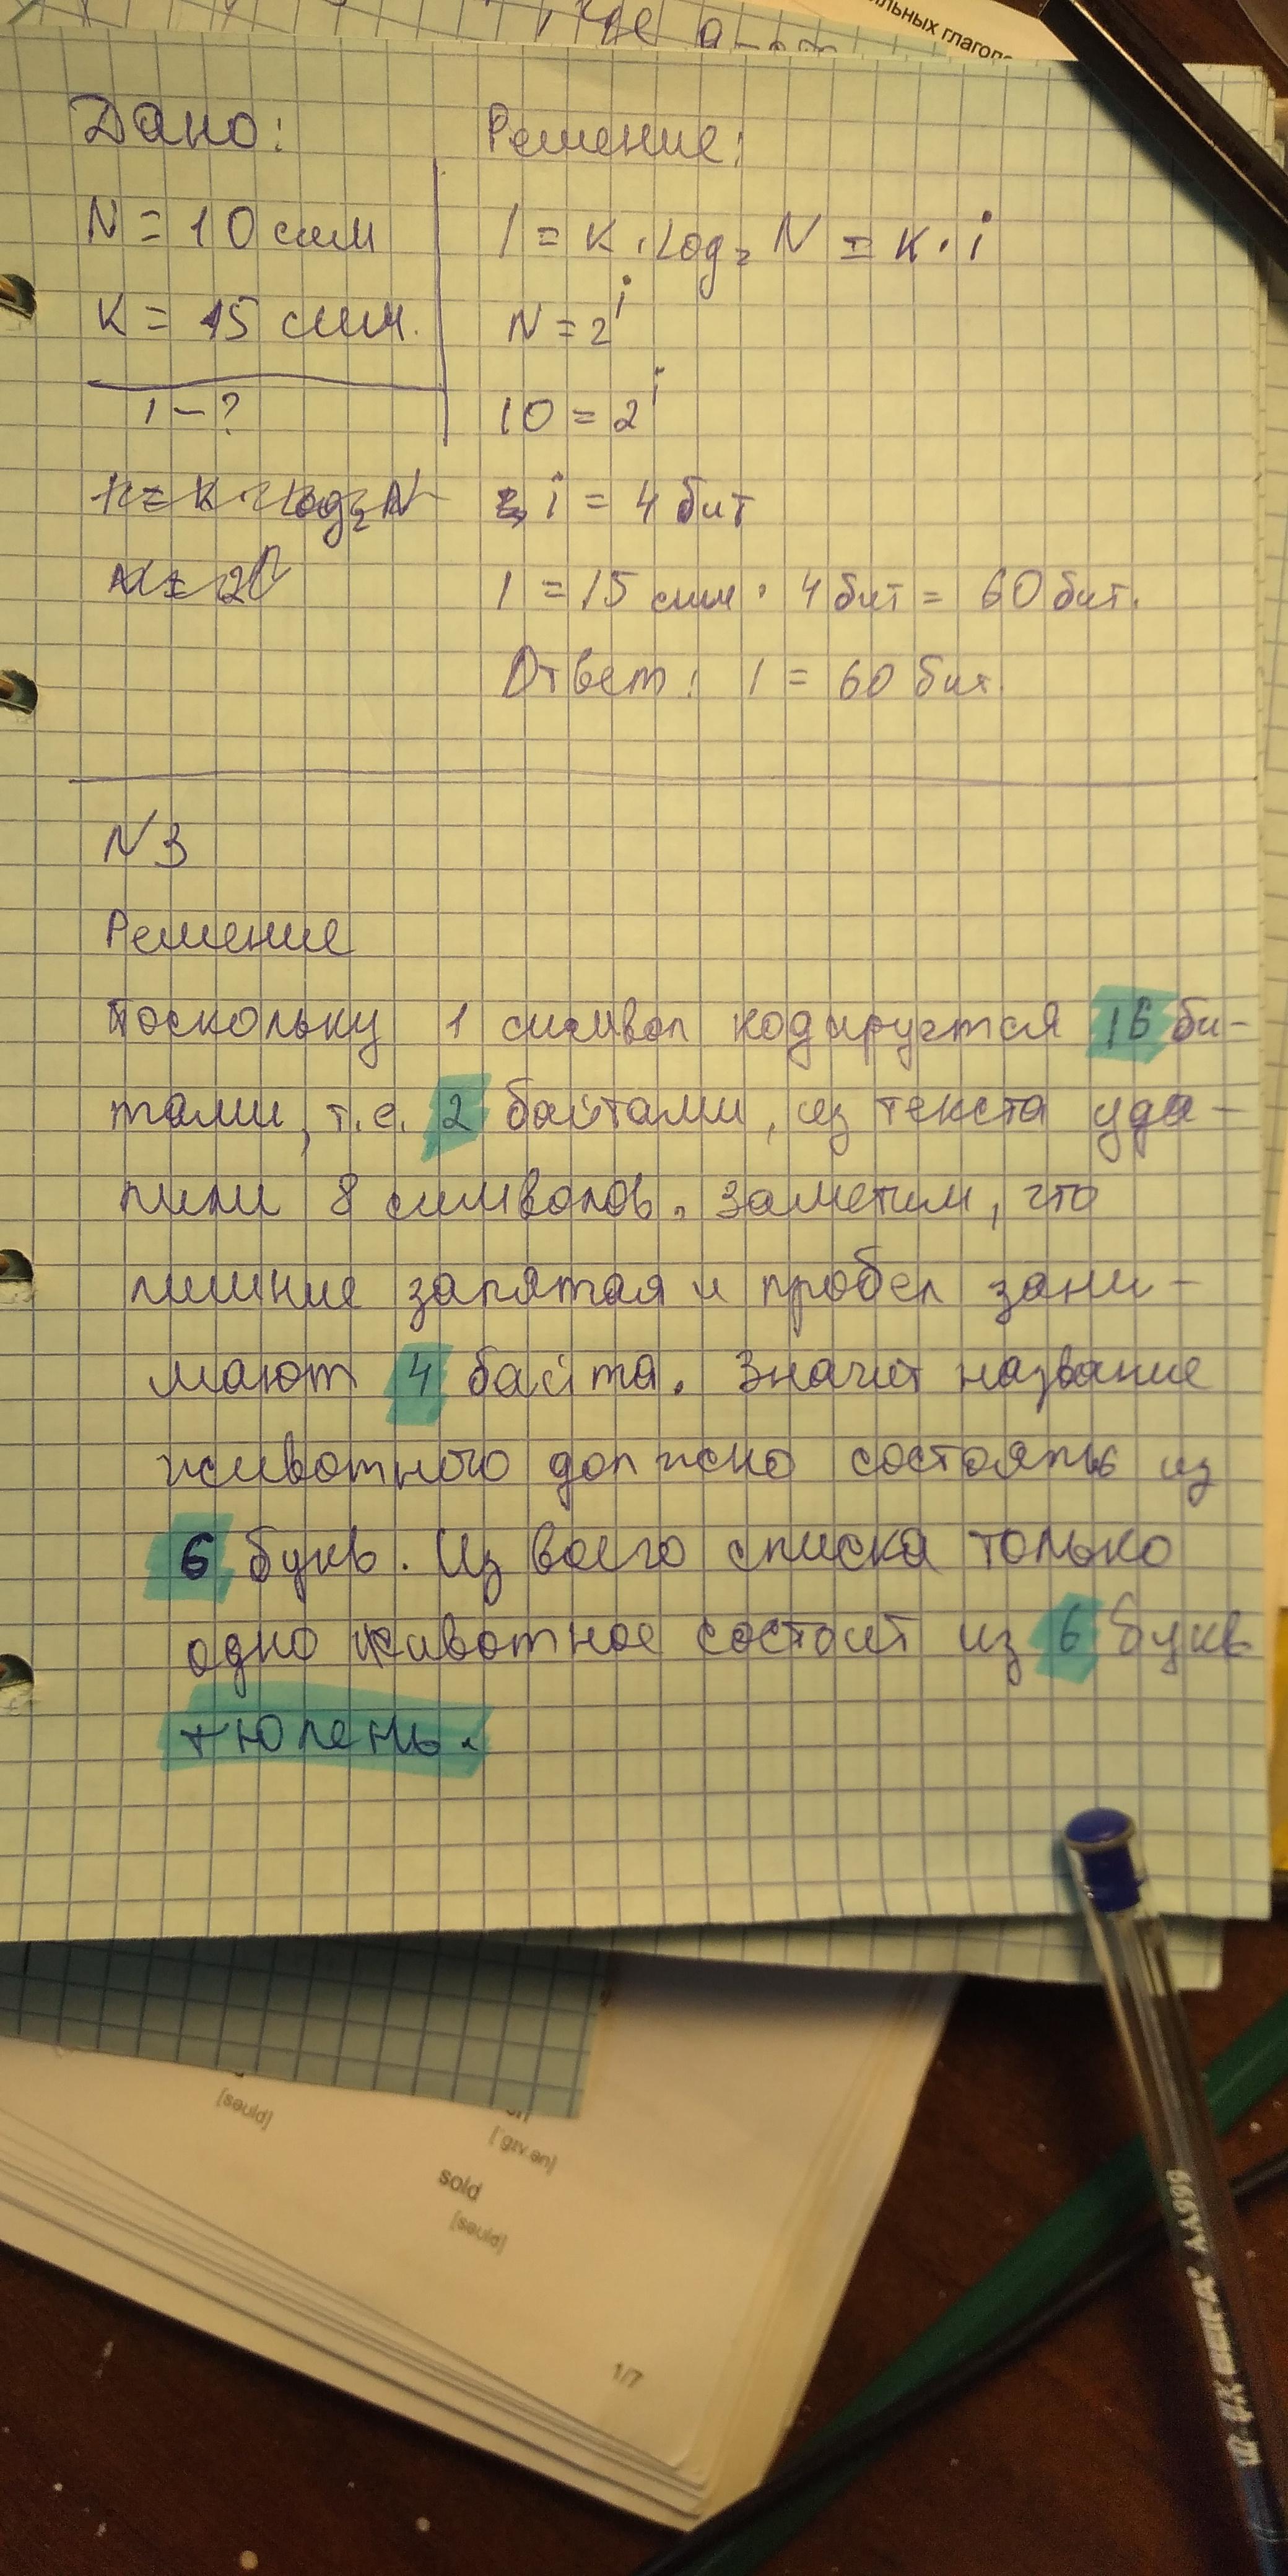 где а
ильных глаголо
Дано:
N = 10 сим
K = 15 сим.
I – ?
Решение:
I = K · Log₂ N = K · i
N = 2ⁱ
10 = 2ⁱ
i = 4 бит
I = 15 сим · 4 бит = 60 бит.
Ответ: I = 60 бит.
N3
Решение
Поскольку 1 символ кодируется 16 би-
тами, т.е. 2 байтами, из текста уда-
лили 8 символов. Заметим, что
лишние запятая и пробел зани-
мают 4 байта. Значит название
животного должно состоять из
6 букв. Из всего списка только
одно животное состоит из 6 букв
тюлень.
[səuld]
[ˈgɪv.ən]
sold
[səuld]
1/7